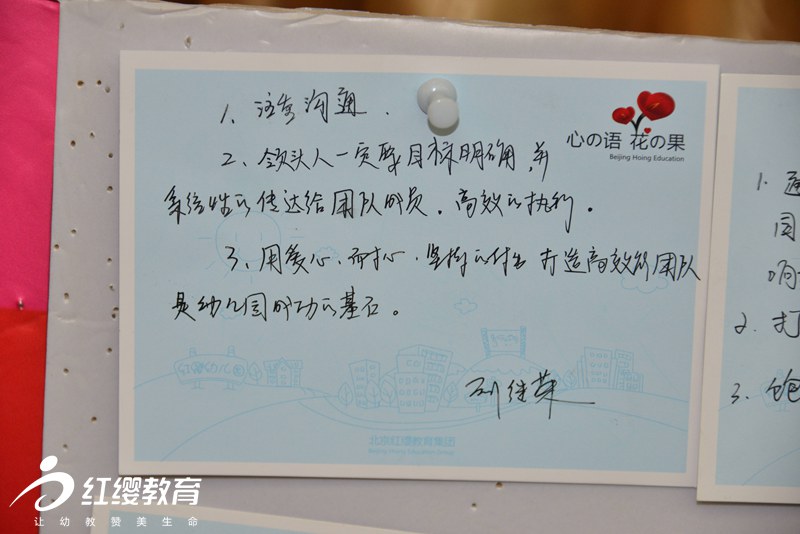 1、注重沟通.
2、领头人一定要目标明确,并
系统性的传达给团队成员。高效的执行。
3、用爱心、耐心、坚持的付出 打造高效能团队
是幼儿园成功的基石。
刘继荣
心の语 花の果
Beijing Hoing Education
北京红缨教育集团
Beijing Hoing Education Group
1.
2. 打
3. 饱
红缨教育
让幼教赞美生命